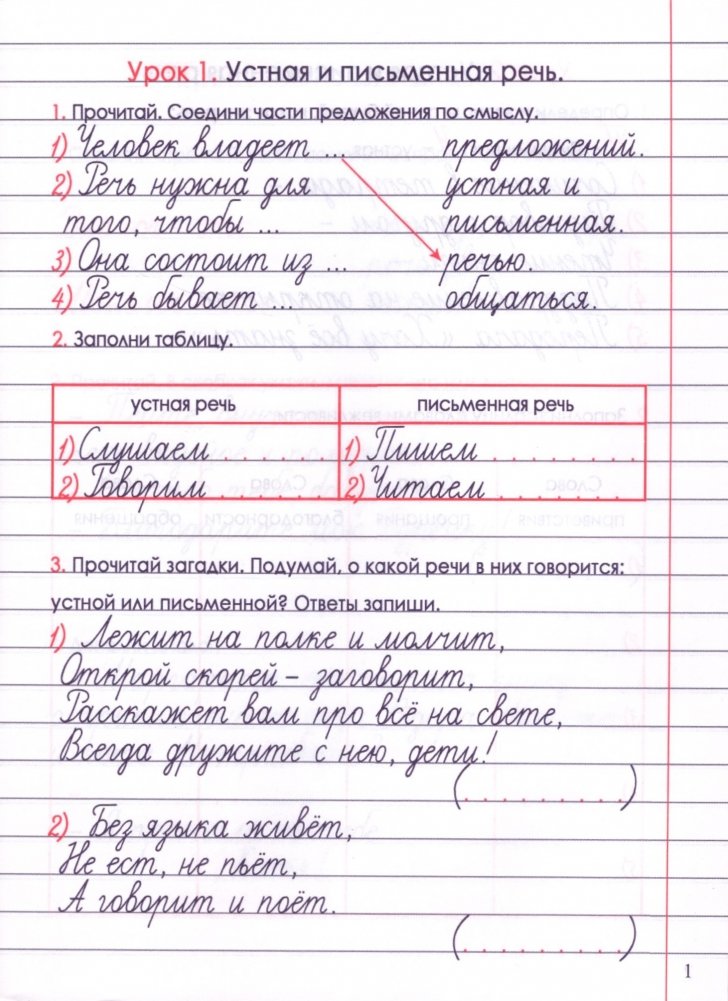 Урок 1. Устная и письменная речь.
1. Прочитай. Соедини части предложения по смыслу.
1) Человек владеет ... предложений.
2) Речь нужна для устная и
того, чтобы ... письменная.
3) Она состоит из ... речью.
4) Речь бывает ... общаться.
2. Заполни таблицу.
устная речь письменная речь
1) Слушаем . . . . . . 1) Пишем . . . . . . .
2) Говорим . . . . . . 2) Читаем . . . . . . .
3. Прочитай загадки. Подумай, о какой речи в них говорится:
устной или письменной? Ответы запиши.
1) Лежит на полке и молчит,
Открой скорей – заговорит,
Расскажет вам про всё на свете,
Всегда дружите с нею, дети!
(. . . . . . . . . .)
2) Без языка живёт,
Не ест, не пьёт,
А говорит и поёт.
(. . . . . . . . . .)
1